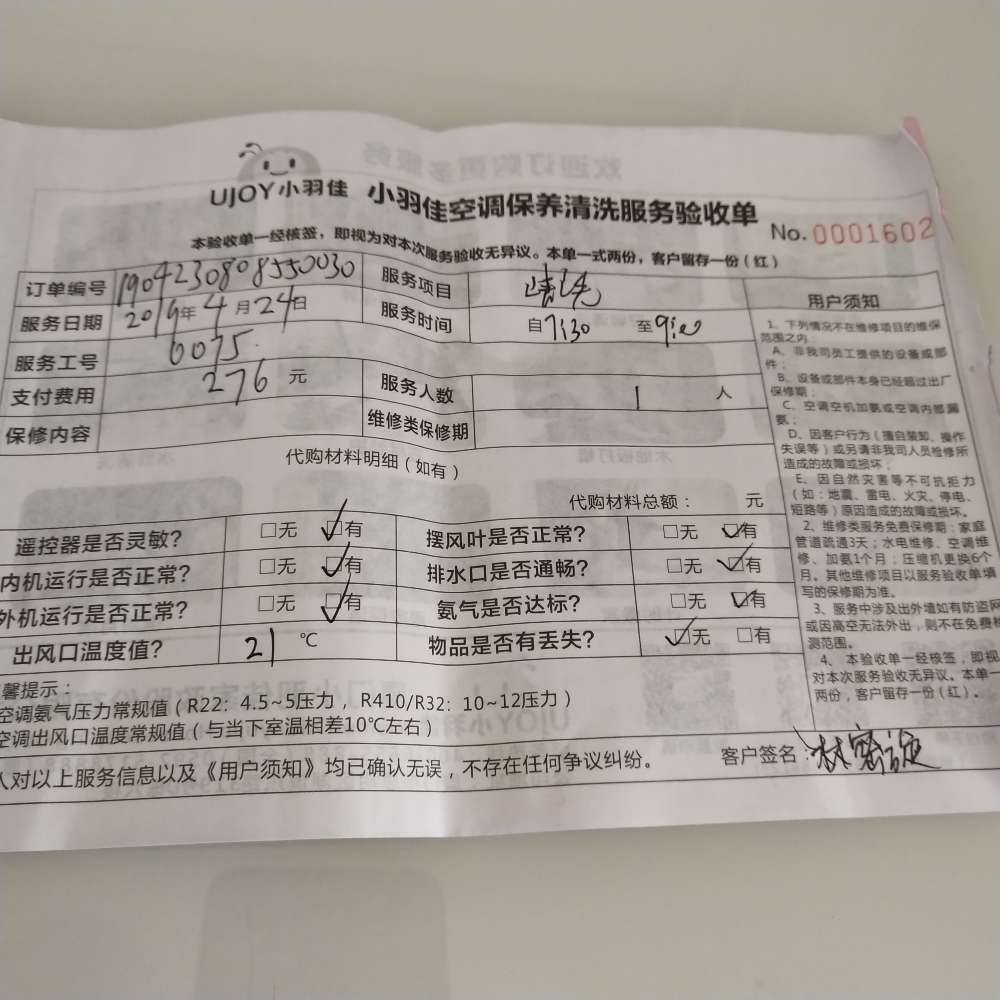 UJOY小羽佳 小羽佳空调保养清洗服务验收单
No. 0001602
本验收单一经核签，即视为对本次服务验收无异议。本单一式两份，客户留存一份（红）
订单编号 1904230808550030 服务项目 清洗
服务日期 2019年4月24日 服务时间 自7:30 至9:00
服务工号 6075
支付费用 276 元 服务人数 1 人
保修内容 维修类保修期
代购材料明细（如有）
代购材料总额： 元
遥控器是否灵敏? □无 ☑有 摆风叶是否正常? □无 ☑有
内机运行是否正常? □无 ☑有 排水口是否通畅? □无 ☑有
外机运行是否正常? □无 ☑有 氨气是否达标? □无 ☑有
出风口温度值? 21 ℃ 物品是否有丢失? ☑无 □有
馨提示：
空调氨气压力常规值（R22：4.5~5压力，R410/R32：10~12压力）
空调出风口温度常规值（与当下室温相差10℃左右）
人对以上服务信息以及《用户须知》均已确认无误，不存在任何争议纠纷。 客户签名：林
用户须知
1、下列情况不在维修项目的维保
范围之内：
A、非我司员工提供的设备或部
件；
B、设备或部件本身已经超过出厂
保修期；
C、空调空机加氨或空调内部漏
氨；
D、因客户行为（擅自装卸、操作
失误等）或另请非我司人员检修所
造成的故障或损坏；
E、因自然灾害等不可抗拒力
（如：地震、雷电、火灾、停电、
短路等）原因造成的故障或损坏。
2、维修类服务免费保修期：家庭
管道疏通3天；水电维修、空调维
修、加氨1个月；压缩机更换6个
月。其他维修项目以服务验收单填
写的保修期为准。
3、服务中涉及出外墙如有防盗网
或因高空无法外出，则不在免费检
测范围。
4、本验收单一经核签，即视
对本次服务验收无异议。本单一
两份，客户留存一份（红）。